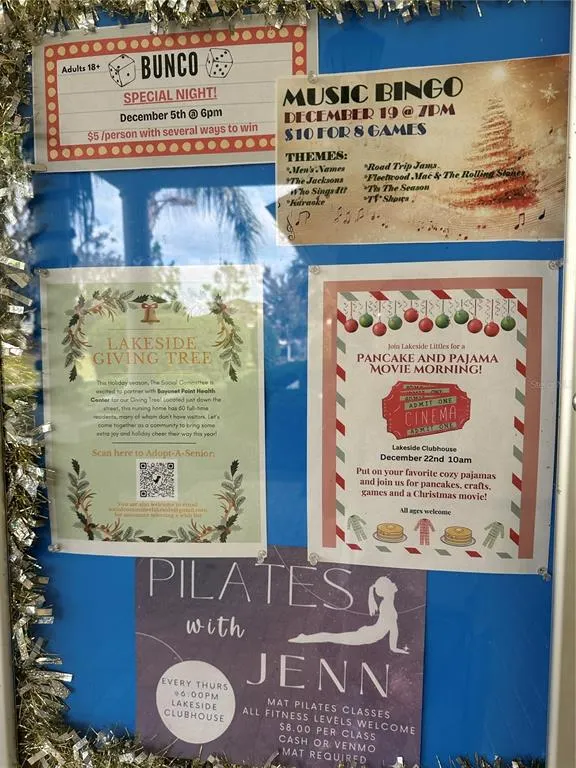 Adults 18+
BUNCO
SPECIAL NIGHT!
December 5th @ 6pm
$5 /person with several ways to win
MUSIC BINGO
DECEMBER 19 @ 7PM
$10 FOR 8 GAMES
THEMES:
*Men's Names
*The Jacksons
*Who Sings It?
*Karaoke
*Road Trip Jams
*Fleetwood Mac & The Rolling Stones
*Tis The Season
*TV Shows
LAKESIDE
GIVING TREE
This Holiday season, The Social Committee is
excited to partner with Bayonet Point Health
Center for our Giving Tree! Located just down
the street, this nursing home has 60 full-time
residents, many of whom don't have visitors. Let's
come together as a community to bring some
extra joy and holiday cheer their way this year!
Scan here to Adopt-A-Senior:
You are also welcome to email
for assistance selecting a wish list
Join Lakeside Littles for a
PANCAKE AND PAJAMA
MOVIE MORNING!
ADMIT ONE
ADMIT ONE
CINEMA
ADMIT ONE
Lakeside Clubhouse
December 22nd 10am
Put on your favorite cozy pajamas
and join us for pancakes, crafts,
games and a Christmas movie!
All ages welcome
PILATES
with
JENN
EVERY THURS
@6:00PM
LAKESIDE
CLUBHOUSE
MAT PILATES CLASSES
ALL FITNESS LEVELS WELCOME
$8.00 PER CLASS
CASH OR VENMO
MAT REQUIRED